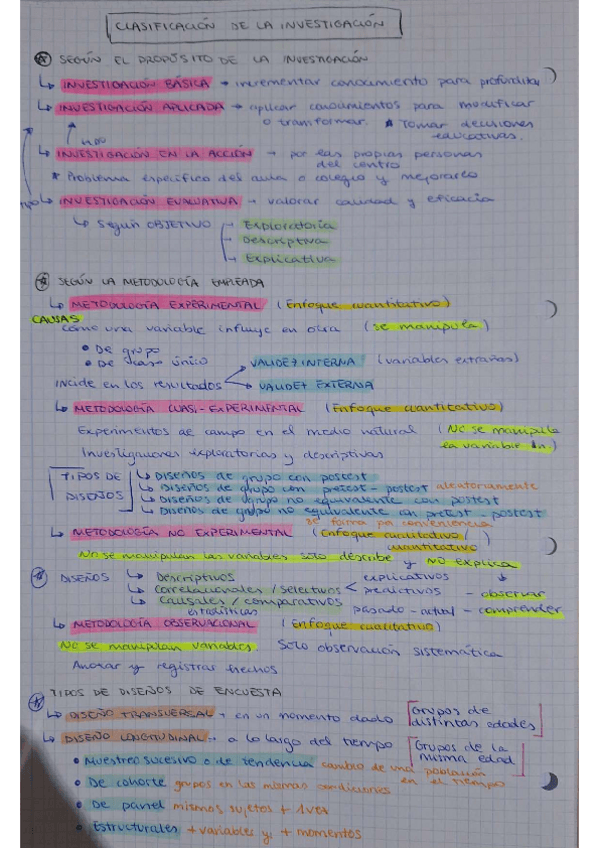 CLASIFICACIÓN DE LA INVESTIGACIÓN
SEGÚN EL PROPÓSITO DE LA INVESTIGACIÓN
↳ INVESTIGACIÓN BÁSICA → incrementar conocimiento para profundizar
↳ INVESTIGACIÓN APLICADA → aplicar conocimientos para modificar
o transformar. * Tomar decisiones
educativas.
tipo
↳ INVESTIGACIÓN EN LA ACCIÓN → por las propias personas
del centro
* Problema específico del aula o colegio y mejorarlo
tipo ↳ INVESTIGACIÓN EVALUATIVA → valorar calidad y eficacia
↳ Según OBJETIVO → Exploratoria
→ Descriptiva
→ Explicativa
SEGÚN LA METODOLOGÍA EMPLEADA
↳ METODOLOGÍA EXPERIMENTAL (Enfoque cuantitativo)
CAUSAS
Cómo una variable influye en otra (se manipula)
• De grupo
• De caso único
VALIDEZ INTERNA (variables extrañas)
Incide en los resultados
VALIDEZ EXTERNA
↳ METODOLOGÍA CUASI-EXPERIMENTAL (Enfoque cuantitativo)
Experimentos de campo en el medio natural (No se manipula
la variable In)
Investigaciones exploratorias y descriptivas
TIPOS DE DISEÑOS
↳ Diseños de grupo con postest
↳ Diseños de grupo con pretest - postest aleatoriamente
↳ Diseños de grupo no equivalente con postest
↳ Diseños de grupo no equivalente con pretest - postest
se forma por conveniencia
↳ METODOLOGÍA NO EXPERIMENTAL (Enfoque cualitativo /
cuantitativo)
No se manipulan las variables solo describe y NO explica
DISEÑOS ↳ Descriptivos
↳ Correlacionales / selectivos < explicativos
predictivos - observar
↳ Causales / comparativos pasado - actual - comprender
↳ METODOLOGÍA OBSERVACIONAL (Enfoque cualitativo)
No se manipulan variables. Solo observación sistemática
Anotar y registras hechos
TIPOS DE DISEÑOS DE ENCUESTA
↳ DISEÑO TRANSVERSAL → en un momento dado [Grupos de
distintas edades]
↳ DISEÑO LONGITUDINAL → a lo largo del tiempo [Grupos de la
misma edad]
• Muestreo sucesivo o de tendencia cambio de una población
en el tiempo
• De cohorte grupos en las mismas condiciones
• De panel mismos sujetos + 1 vez
• Estructurales + variables y + momentos